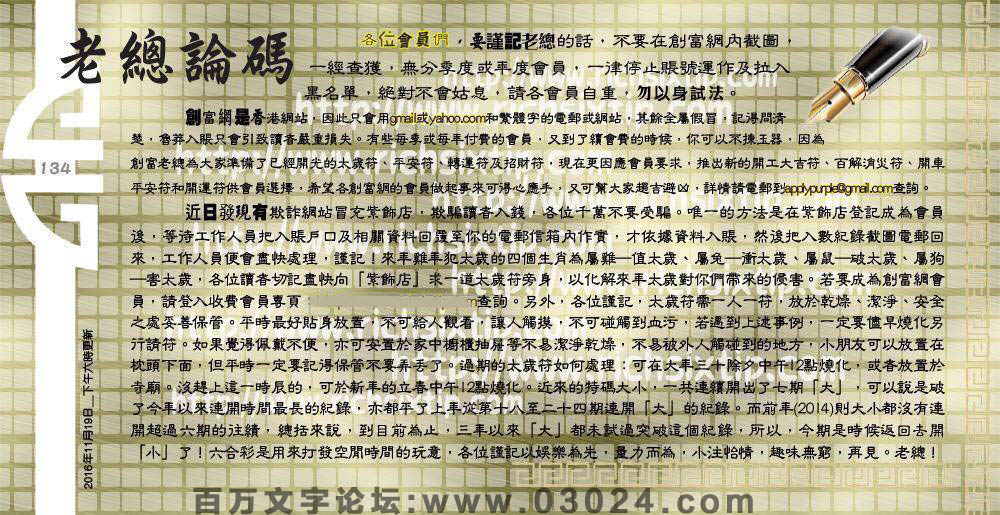 老總論碼
各位會員們，要謹記老總的話，不要在創富網內截圖，
一經查獲，無分季度或年度會員，一律停止賬號運作及拉入
黑名單，絕對不會姑息，請各會員自重，勿以身試法。
創富網是香港網站，因此只會用gmail或yahoo.com和繁體字的電郵或網站，其餘全屬假冒，記得問清
楚，魯莽入賬只會引致讀者嚴重損失。有些每季或每年付費的會員，又到了續會費的時候，你可以不揀玉器，因為
創富老總為大家準備了已經開光的太歲符、平安符、轉運符及招財符，現在更因應會員要求，推出新的開工大吉符、百解消災符、開車
平安符和開運符供會員選擇，希望各創富網的會員做起事來可得心應手，又可幫大家趨吉避凶，詳情請電郵到applypurple@gmail.com查詢。
近日發現有欺詐網站冒充紫飾店，欺騙讀者入錢，各位千萬不要受騙。唯一的方法是在紫飾店登記成為會員
後，等待工作人員把入賬戶口及相關資料回覆至你的電郵信箱內作實，才依據資料入賬，然後把入數紀錄截圖電郵回
來，工作人員便會盡快處理，謹記！來年雞年犯太歲的四個生肖為屬雞—值太歲、屬兔—衝太歲、屬鼠—破太歲、屬狗
—害太歲，各位讀者切記盡快向「紫飾店」求一道太歲符旁身，以化解來年太歲對你們帶來的侵害。若要成為創富網會
員，請登入收費會員專頁查詢。另外，各位謹記，太歲符需一人一符，放於乾燥、潔淨、安全
之處妥善保管。平時最好貼身放置，不可給人觀看，讓人觸摸，不可碰觸到血污，若遇到上述事例，一定要儘早燒化另
行請符。如果覺得佩戴不便，亦可安置於家中櫥櫃抽屜等不易潔淨乾燥，不易被外人觸碰到的地方，小朋友可以放置在
枕頭下面，但平時一定要記得保管不要弄丟了。過期的太歲符如何處理，可在大年三十除夕中午12點燒化，或者放置於
寺廟。沒趕上這一時辰的，可於新年的立春中午12點燒化。近來的特碼大小，一共連續開出了七期「大」，可以說是破
了今年以來連開時間最長的紀錄，亦都平了上年從第十八至二十四期連開「大」的紀錄。而前年(2014)則大小都沒有連
開超過六期的往績，總括來說，到目前為止，三年以來「大」都未試過突破這個紀錄，所以，今期是時候返回去開
「小」了！六合彩是用來打發空閒時間的玩意，各位謹記以娛樂為先，量力而為，小注怡情，趣味無窮，再見。老總！
134
2016年11月19日__下午六時更新
http://www.richsixtip.com
百万文字论坛:www.03024.com